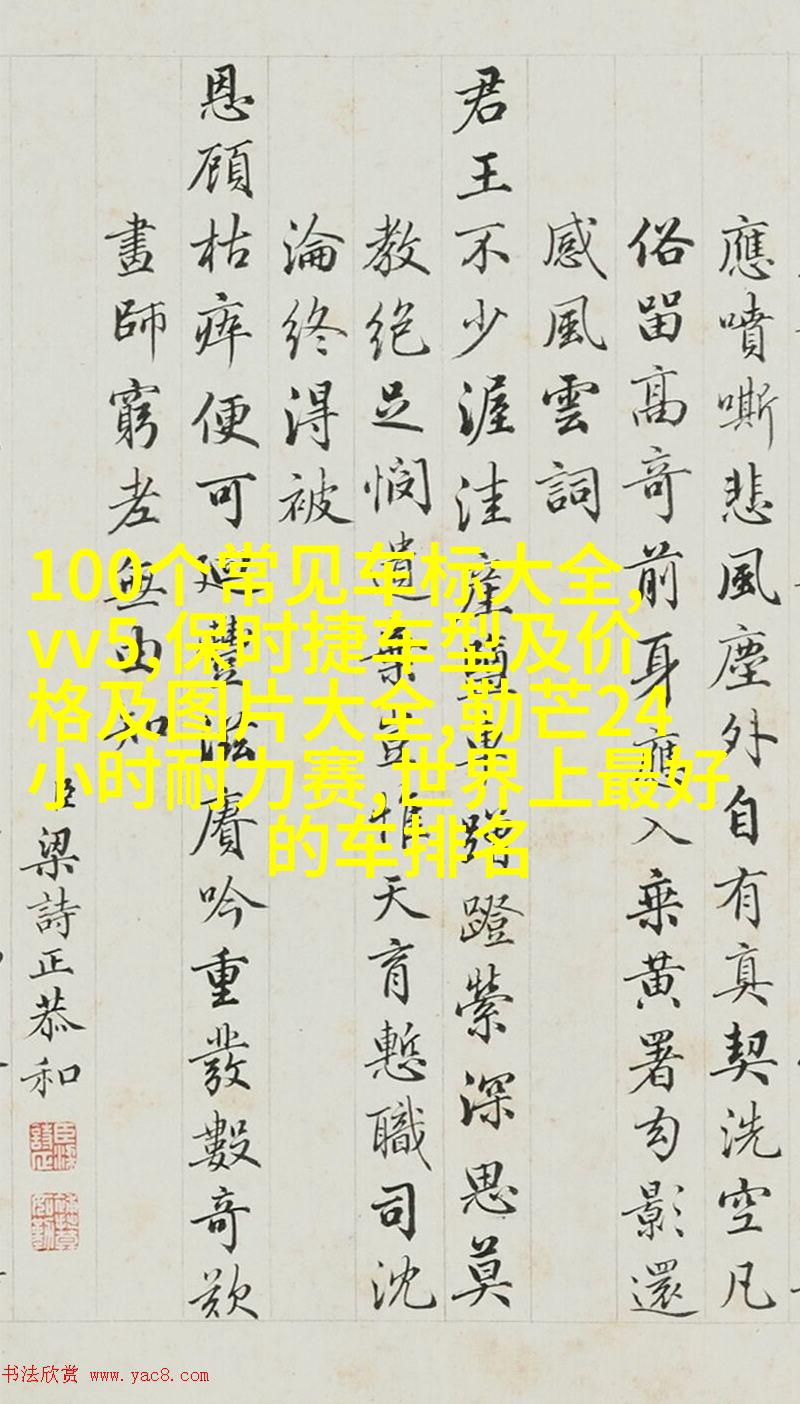 應噴嘶悲風塵外自有真契洗空凡
俗畱高奇前身應入乘黃署勾影還
感風雲詞
君王不少渥洼產蹭蹬縈深思莫
教絕足憫遺棄豈惟天育慙職司沈
淪終得被
恩顧枯瘁便可豐吟重發數奇歎
畫師窮老無由知
臣梁詩正恭和
100个常见车标大全,
vv5,保时捷车型及价
格及图片大全,勒芒24
小时耐力赛,世界上最好
的车排名
书法欣赏 www.yac8.com